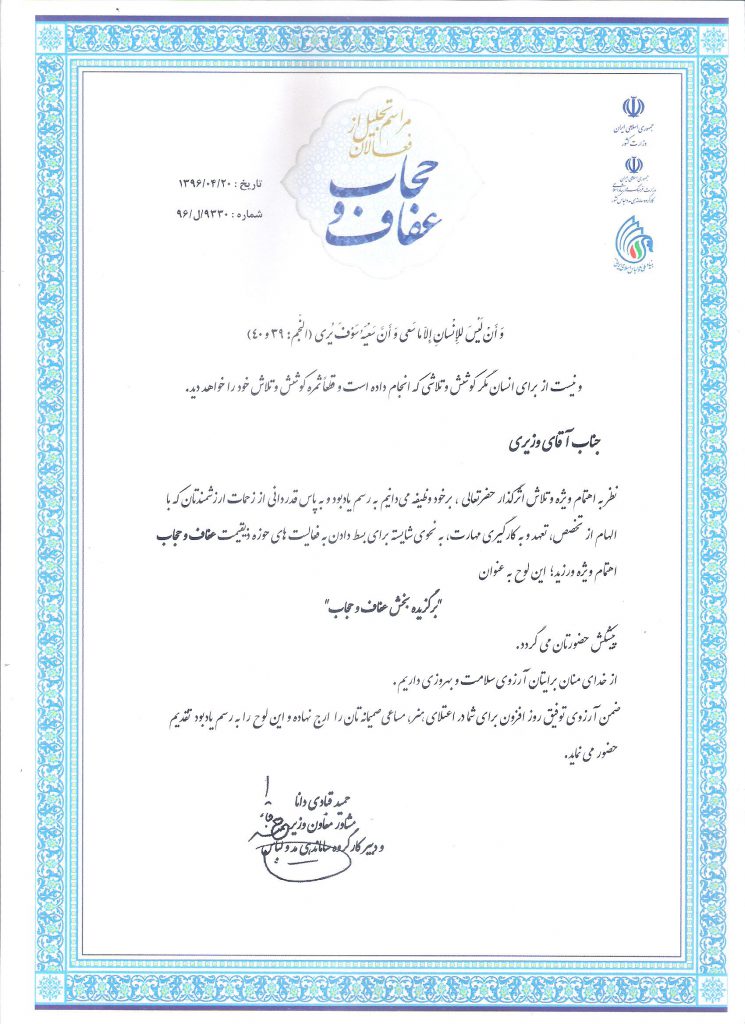 مراسم تجلیل از
فعالان
حجاب
و
عفاف
جمهوری اسلامی ایران
وزارت کشور
جمهوری اسلامی ایران
وزارت فرهنگ و ارشاد اسلامی
کارگروه ساماندهی مد و لباس کشور
تاریخ : ۱۳۹۶/۰۴/۲۰
شماره : ۹۶/ل/۹۳۳۰
وَ أَنْ لَیْسَ لِلْإِنْسانِ إِلاَّ ما سَعى وَ أَنَّ سَعْیَهُ سَوْفَ یُرى (النَّجم: ۳۹ و ۴۰)
و نیست از برای انسان مگر کوشش و تلاشی که انجام داده است و قطعاً ثمره کوشش و تلاش خود را خواهد دید.
جناب آقای وزیری
نظر به اهتمام ویژه و تلاش اثرگذار حضرتعالی ، بر خود وظیفه می‌دانیم به رسم یادبود و به پاس قدردانی از زحمات ارزشمندتان که با
الهام از تخصص، تعهد و به کارگیری مهارت، به نحوی شایسته برای بسط دادن به فعالیت های حوزه ذیقیمت عفاف و حجاب
اهتمام ویژه ورزید؛ این لوح به عنوان
"برگزیده بخش عفاف و حجاب"
پیشکش حضورتان می گردد.
از خدای منان برایتان آرزوی سلامت و بهروزی داریم.
ضمن آرزوی توفیق روز افزون برای شما در اعتلای هنر، مساعی صمیمانه تان را ارج نهاده و این لوح را به رسم یادبود تقدیم
حضور می نماید.
حمید قبادی دانا
مشاور معاون وزیر
و دبیر کارگروه ساماندهی مد و لباس